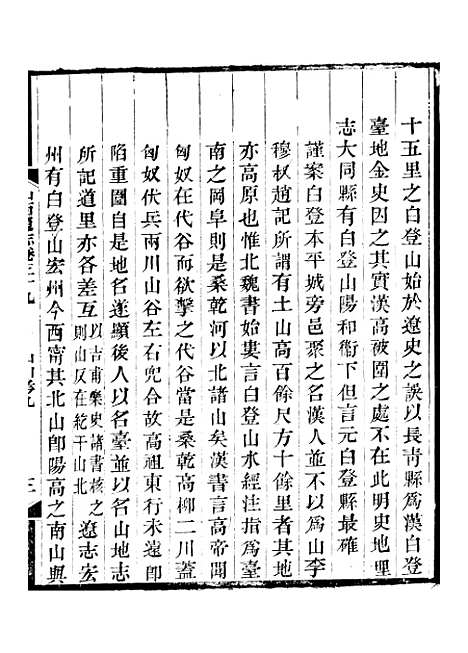 十五里之白登山始於遼史之誤以長靑縣爲漢白登
臺地金史因之其實漢高被圍之處不在此明史地理
志大同縣有白登山陽和衞下但言元白登縣最確
謹案白登本平城旁邑聚之名漢人並不以爲山李
穆叔趙記所謂有土山高百餘尺方十餘里者其地
亦高原也惟北魏書始婁言白登山水經注指爲臺
南之岡阜則是桑乾河以北諸山矣漢書言高帝聞
匈奴在代谷而欲擊之代谷當是桑乾高柳二川蓋
匈奴伏兵兩川山谷左右兜合故高祖東行未遠卽
陷重圍自是地名遂顯後人以名臺並以名山地志
所記道里亦各差互以古甫樂史諸書核之則山反在紇干山北遼志宏
州有白登山宏州今西甯其北山卽陽高之南山與
卷三十九
三